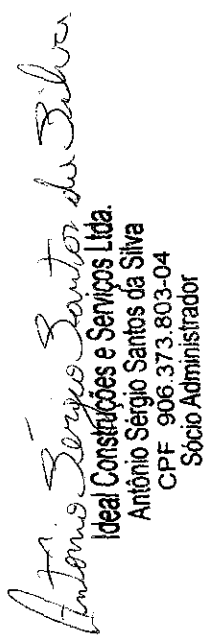 Antonio Sérgio Santos da Silva
Ideal Construções e Serviços Ltda.
Antônio Sérgio Santos da Silva
CPF 906.373.803-04
Sócio Administrador